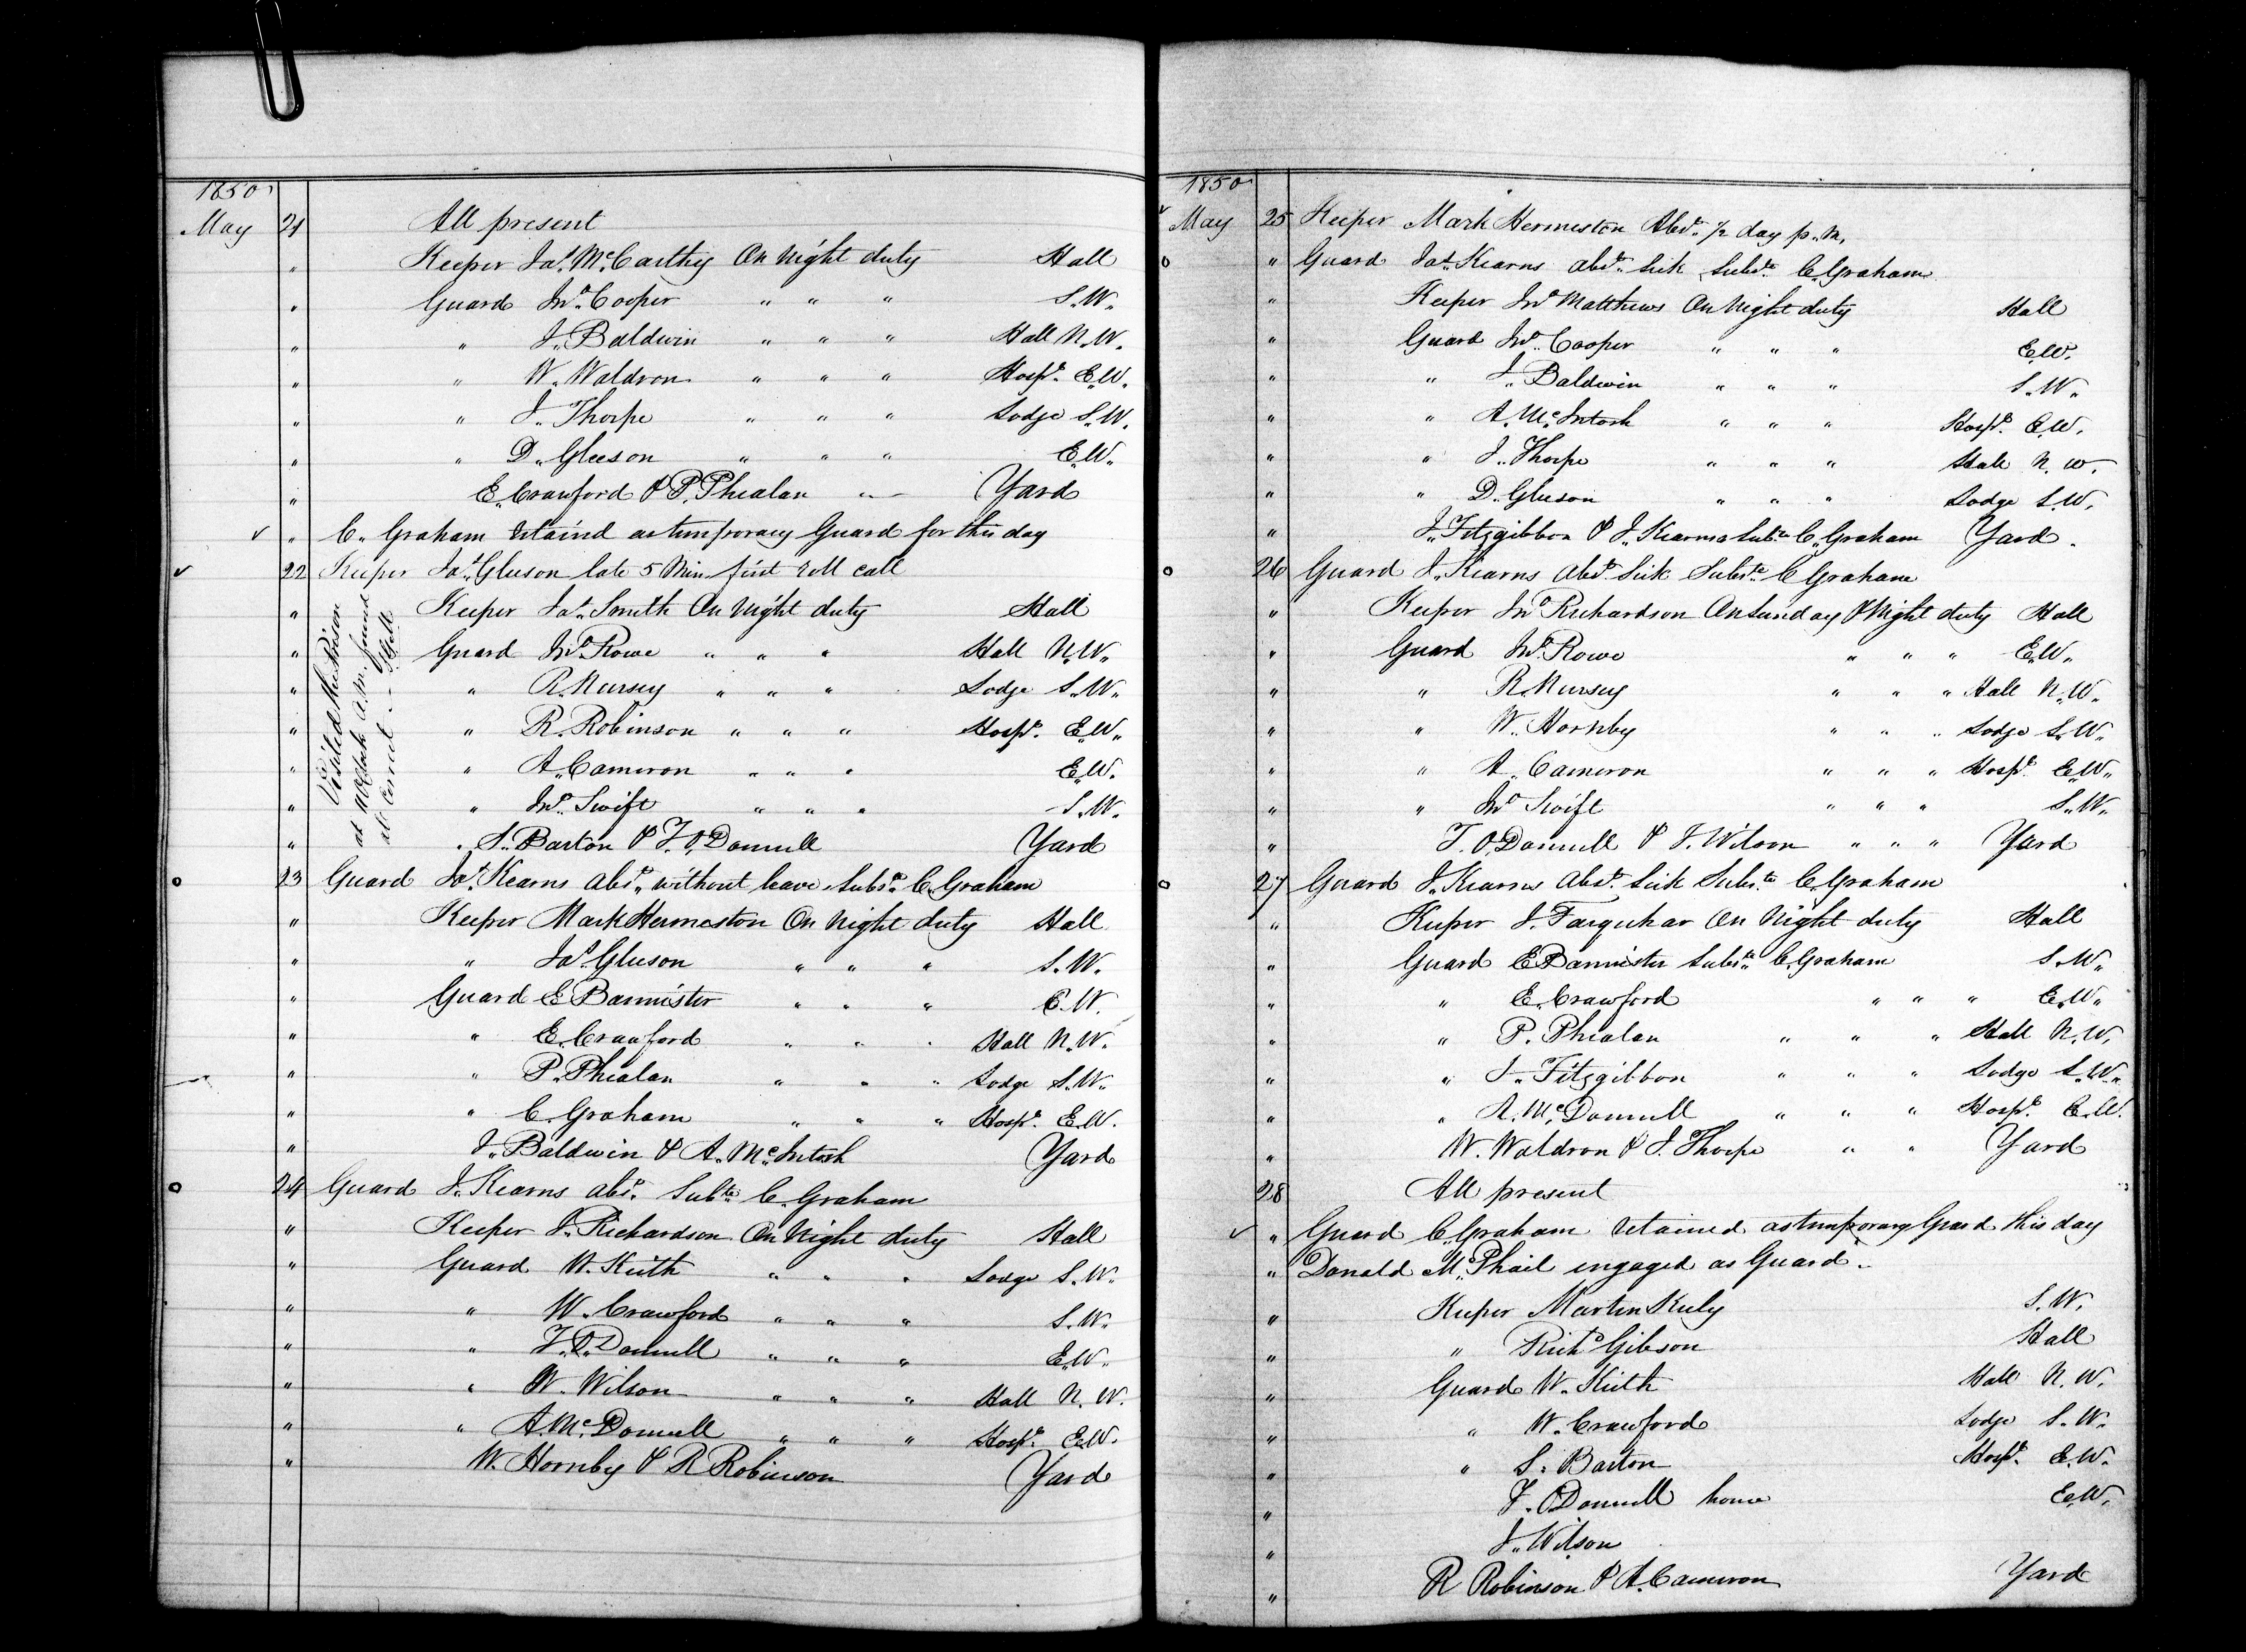 1850
May 21 All present
" Keeper Jas. McCarthy On Night duty Hall
" Guard Jno. Cooper " " " S.W.
" " J. Baldwin " " " Hall N.W.
" " W. Waldron " " " Hospl. E.W.
" " J. Thorpe " " " Lodge S.W.
" " D. Gleeson " " " E.W.
" E. Crawford & P. Phealan " - Yard
✓ " C. Graham retaind as temporary Guard for this day
✓ 22 Keeper Jas. Gleeson late 5 Min first roll call
" Keeper Jas. Smith On Night duty Hall
" Guard Jno. Rowe " " " Hall N.W.
" " R. Nursey " " " Lodge S.W.
" " R. Robinson " " " Hospl. E.W.
" " A. Cameron " " " E.W.
" " Jno. Swift " " " S.W.
" " S. Barton & F. O'Donnell Yard
Visited the Prison
at Clock A.M. found
all Correct
o 23 Guard Jas. Kearns absd. without leave Subste. C. Graham
" Keeper Mark Hermeston On Night duty Hall
" " Jas. Gleeson " " " S.W.
" Guard E Bannister " " " E.W.
" " E. Crawford " " " Hall N.W.
" " P. Phealan " " " Lodge S.W.
" " C. Graham " " " Hospl. E.W.
" J. Baldwin & A. McIntosh Yard
o 24 Guard J. Kearns absd. Subte. C. Graham
" Keeper J. Richardson On Night duty Hall
" Guard W. Keith " " " Lodge S.W.
" " W. Crawford " " " S.W.
" " F. O'Donnell " " " E.W.
" " W. Wilson " " " Hall N.W.
" " A. McDonnell " " " Hospl. E.W.
" W. Hornby & R Robinson Yard
1850
✓ May 25 Keeper Mark Hermeston Absd. 1/2 day p.m.
o " Guard Jas. Kearns absd. Sick Subste. C. Graham
" Keeper Jno. Matthews On Night duty Hall
" Guard Jno. Cooper " " " E.W.
" " J. Baldwin " " " S.W.
" " A. McIntosh " " " Hospl. E.W.
" " J. Thorpe " " " Hall N.W.
" " D. Gleeson " " " Lodge S.W.
" J. Fitzgibbon & J. Kearns Subte. C. Graham Yard
o 26 Guard J. Kearns absd. Sick Subste. C Graham
" Keeper Jno. Richardson On Sunday & Night duty Hall
" Guard Jno. Rowe " " " E.W.
" " R. Nursey " " " Hall N.W.
" " W. Hornby " " " Lodge S.W.
" " A. Cameron " " " Hospl. E.W.
" " Jno. Swift " " " S.W.
" F. O'Donnell & J. Wilson " " " Yard
o 27 Guard J. Kearns Absd. Sick Subste. C. Graham
" Keeper J. Farquhar On Night duty Hall
" Guard E Bannister Subste. C. Graham S.W.
" " E. Crawford " " " E.W.
" " P. Phealan " " " Hall N.W.
" " J. Fitzgibbon " " " Lodge S.W.
" " A. McDonnell " " " Hospl. E.W.
" W. Waldron & J. Thorpe " " Yard
28 All present
✓ " Guard C. Graham retained as temporary Guard this day
" Donald McPhail engaged as Guard
" Keeper Martin Keely S.W.
" " Richd. Gibson Hall
" Guard W. Keith Hall N.W.
" " W. Crawford Lodge S.W.
" " S. Barton Hospl. E.W.
" F. O'Donnell home E.W.
" J. Wilson
" R Robinson & A. Cameron Yard